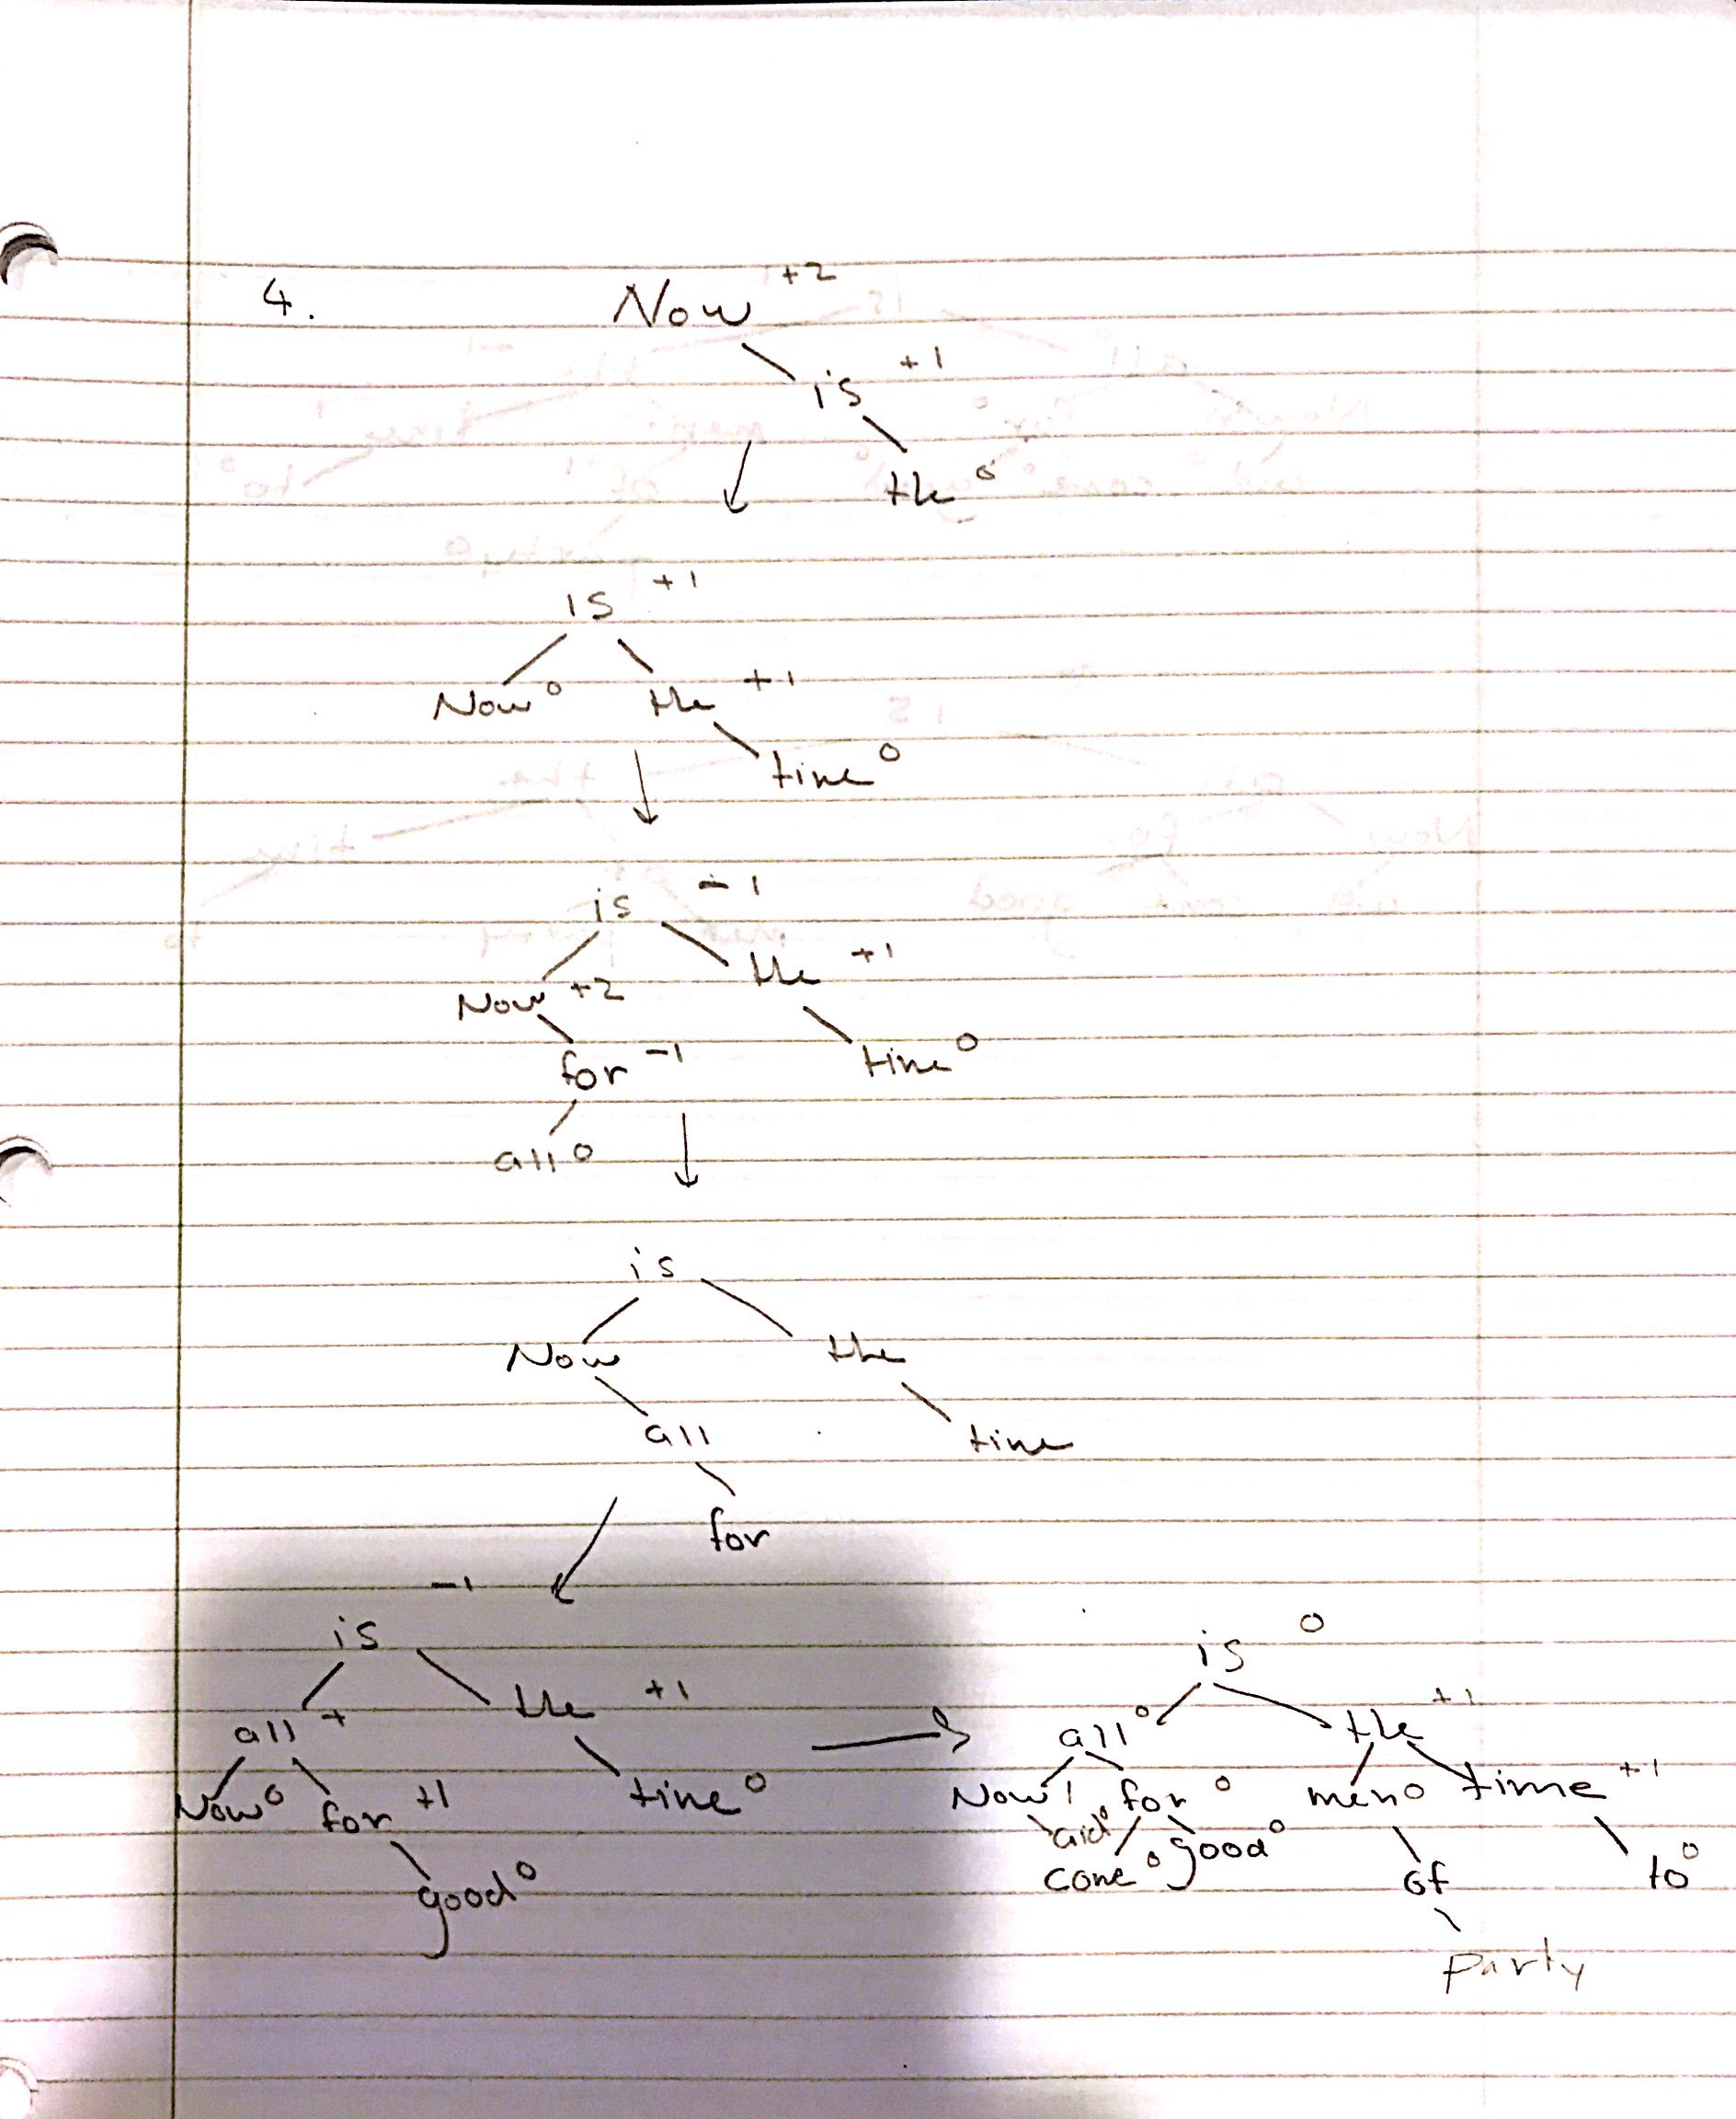 4. Now +2
is +1
the 0
is +1
Now 0 the +1
time 0
is -1
Now +2 the +1
for -1 time 0
all 0
is
Now the
all time
for
-1
is
all + the +1
Now 0 for +1 time 0
good 0
is 0
all 0 the +1
Now 1 for 0 men 0 time +1
aid 0 good 0
come 0 of to 0
party